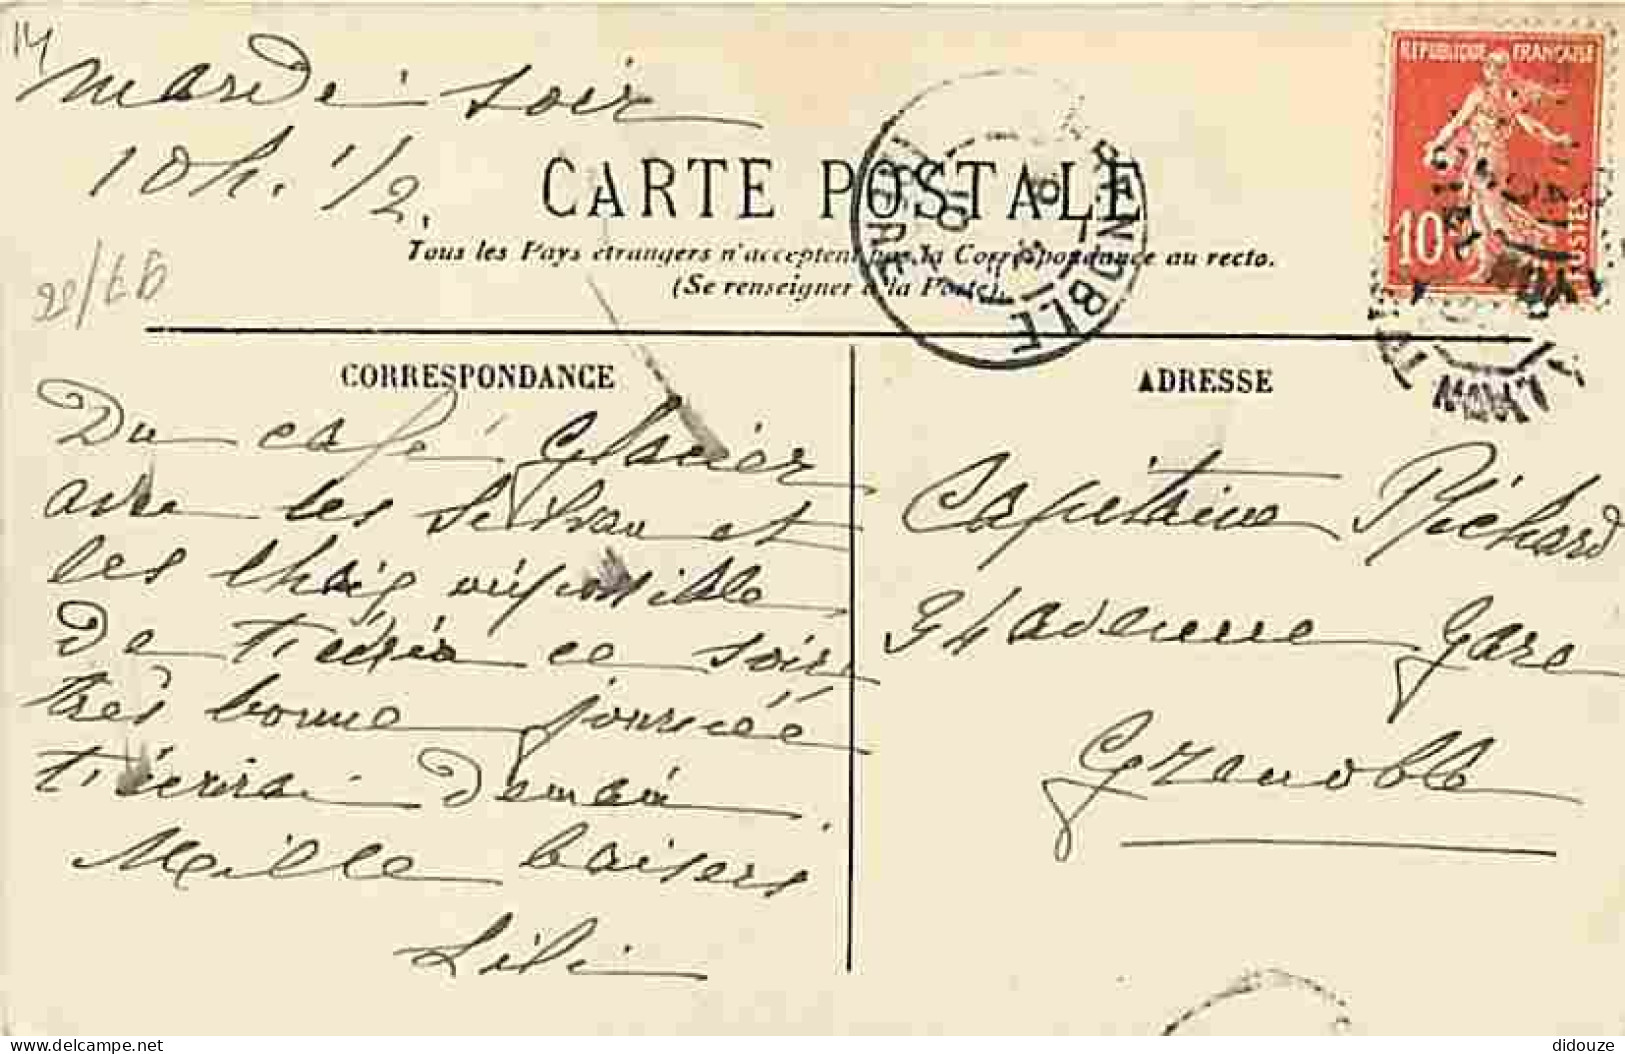 14
Mardi soir
10h. 1/2.
CARTE POSTALE
Tous les Pays étrangers n'acceptent pas la Correspondance au recto.
(Se renseigner à la Poste).
GRENOBLE
ISERE
REPUBLIQUE FRANÇAISE
10
POSTES
CORRESPONDANCE
Du café Glacier
avec les et
les impossible
de t'écrire ce soir
très bonne journéé
t'écrirai demain
Mille baisers
Lili
ADRESSE
Capitaine Richard
34 avenue Gare
Grenoble
delcampe.net
didouze